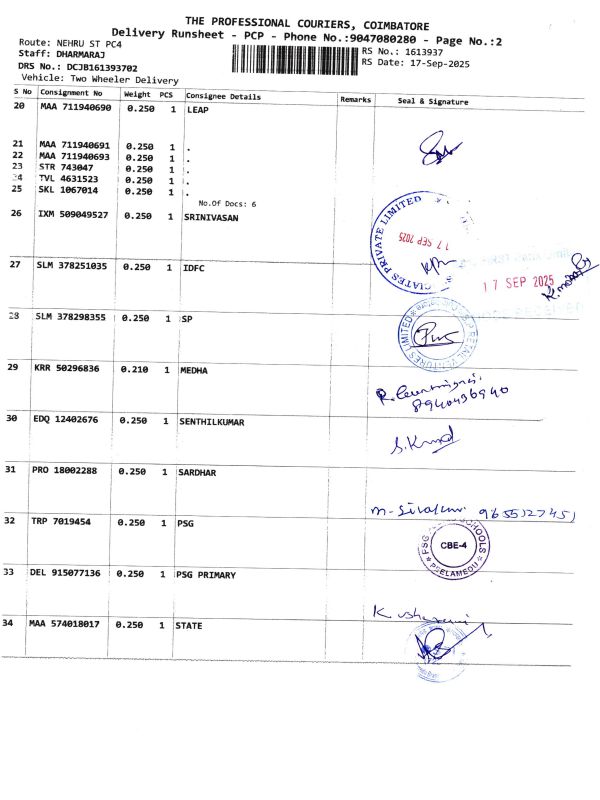 THE PROFESSIONAL COURIERS, COIMBATORE
Delivery Runsheet - PCP - Phone No.:9047080280 - Page No.:2
Route: NEHRU ST PC4
Staff: DHARMARAJ
DRS No.: DCJB161393702
Vehicle: Two Wheeler Delivery
RS No.: 1613937
RS Date: 17-Sep-2025
S No Consignment No Weight PCS Consignee Details Remarks Seal & Signature
20 MAA 711940690 0.250 1 LEAP
21 MAA 711940691 0.250 1 .
22 MAA 711940693 0.250 1 .
23 STR 743047 0.250 1 .
24 TVL 4631523 0.250 1 .
25 SKL 1067014 0.250 1 .
No.Of Docs: 6
26 IXM 509049527 0.250 1 SRINIVASAN
PRIVATE LIMITED
17 SEP 2025
27 SLM 378251035 0.250 1 IDFC
17 SEP 2025
28 SLM 378298355 0.250 1 SP
VENTURES LIMITED
29 KRR 50296836 0.210 1 MEDHA
8940436940
30 EDQ 12402676 0.250 1 SENTHILKUMAR
S. Kumar
31 PRO 18002288 0.250 1 SARDHAR
9655127451
32 TRP 7019454 0.250 1 PSG
PSG SCHOOLS
CBE-4
PEELAMEDU
33 DEL 915077136 0.250 1 PSG PRIMARY
34 MAA 574018017 0.250 1 STATE